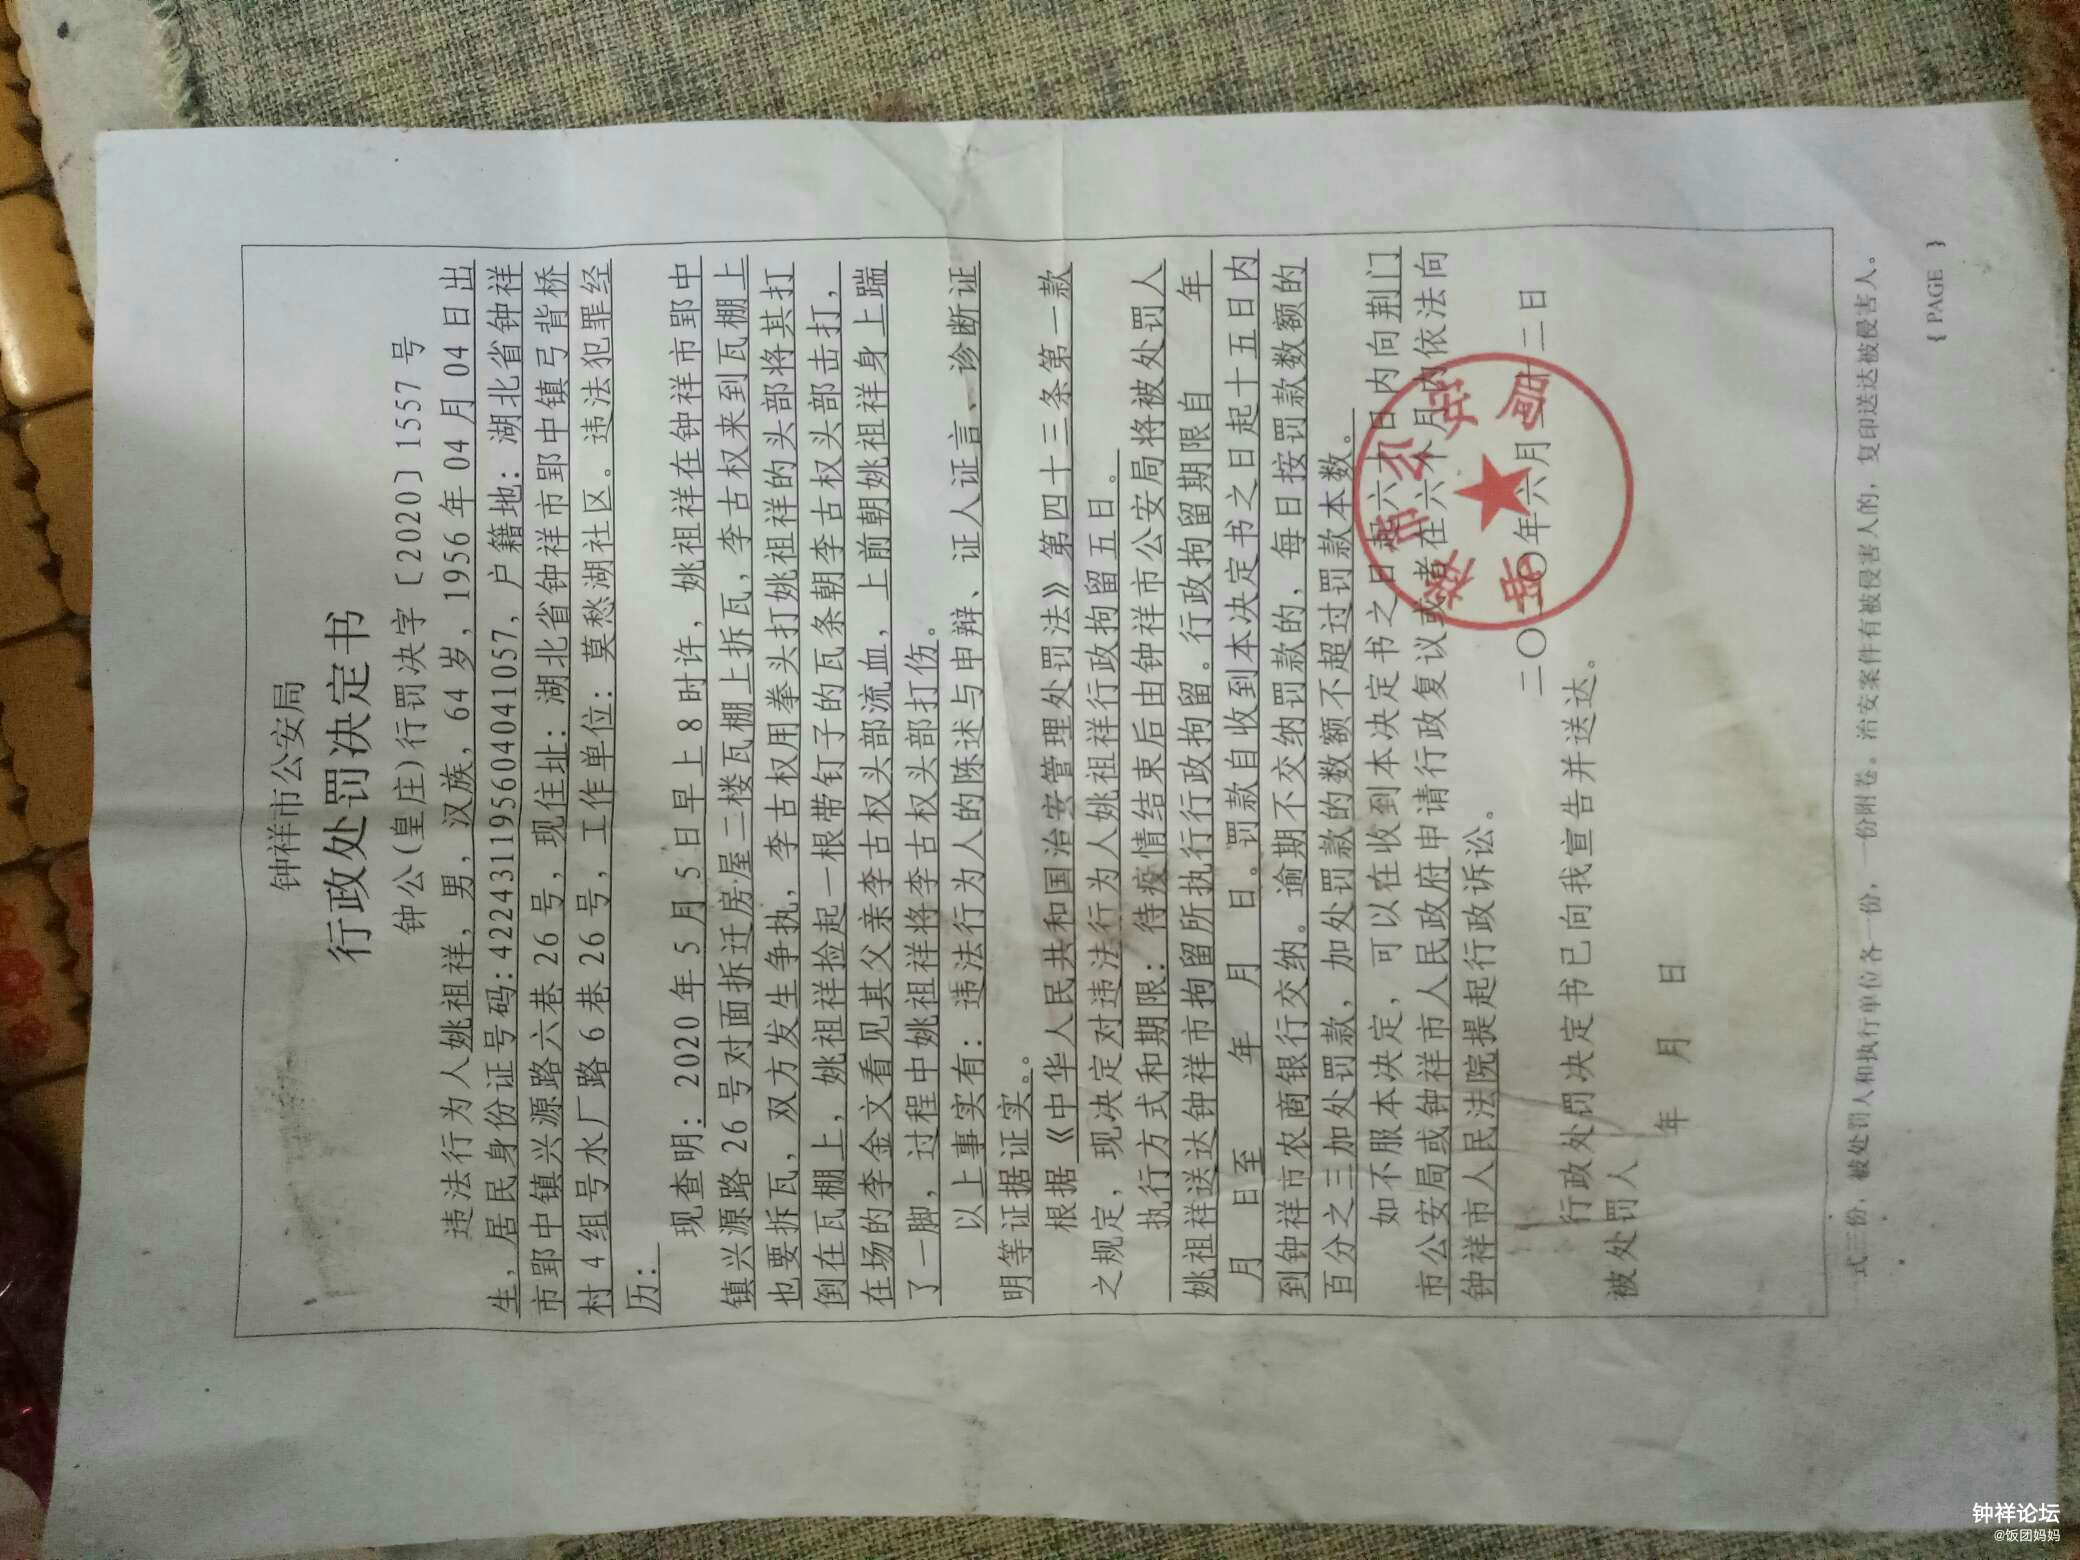 钟祥市公安局
行政处罚决定书
钟公(皇庄)行罚决字〔2020〕1557号
违法行为人姚祖祥,男,汉族,64岁,1956年04月04日出
生,居民身份证号码:422431195604041057,户籍地:湖北省钟祥
市郢中镇兴源路六巷26号,现住址:湖北省钟祥市郢中镇弓背桥
村4组号水厂路6巷26号,工作单位:莫愁湖社区。违法犯罪经
历:
现查明:2020年5月5日早上8时许,姚祖祥在钟祥市郢中
镇兴源路26号对面拆迁房屋二楼瓦棚上拆瓦,李古权来到瓦棚上
也要拆瓦,双方发生争执,李古权用拳头打姚祖祥的头部将其打
倒在瓦棚上,姚祖祥捡起一根带钉子的瓦条朝李古权头部击打,
在场的李金文看见其父亲李古权头部流血,上前朝姚祖祥身上踹
了一脚,过程中姚祖祥将李古权头部打伤。
以上事实有:违法行为人的陈述与申辩、证人证言、诊断证
明等证据证实。
根据《中华人民共和国治安管理处罚法》第四十三条第一款
之规定,现决定对违法行为人姚祖祥行政拘留五日。
执行方式和期限:待疫情结束后由钟祥市公安局将被处罚人
姚祖祥送达钟祥市拘留所执行行政拘留。行政拘留期限自 年
月 日至 年 月 日。罚款自收到本决定书之日起十五日内
到钟祥市农商银行交纳。逾期不交纳罚款的,每日按罚款数额的
百分之三加处罚款,加处罚款的数额不超过罚款本数。
如不服本决定,可以在收到本决定书之日起六十日内向荆门
市公安局或钟祥市人民政府申请行政复议或者在六个月内依法向
钟祥市人民法院提起行政诉讼。
二〇二〇年六月二十二日
行政处罚决定书已向我宣告并送达。
被处罚人
年 月 日
一式三份,被处罚人和执行单位各一份,一份附卷。治安案件有被侵害人的,复印送达被侵害人。
{ PAGE }
钟祥论坛
@饭团妈妈